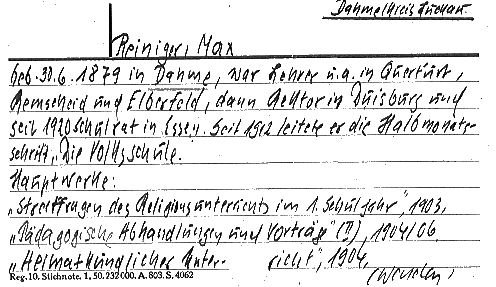 Dahme/Kreis Luckau
Reiniger, Max
geb. 30.6.1879 in Dahme, war Lehrer u.a. in Querfurt,
Remscheid und Elberfeld, dann Rektor in Duisburg und
seit 1920 Schulrat in Essen. Seit 1912 leitete er die Halbmonats-
schrift „Die Volksschule.
Hauptwerke:
„Streitfragen des Religionsunterrichts im 1. Schuljahr", 1903,
„Pädagogische Abhandlungen und Vorträge" (2), 1904/06
„Heimatkundlicher Unter- richt", 1904
Reg. 10. Stichnote. 1, 50. 232 000. A. 803. S. 4062